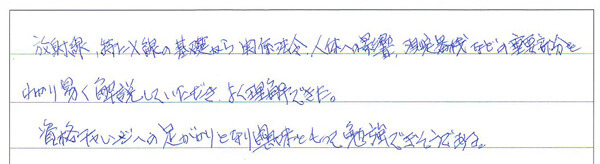 放射線、特にX線の基礎から関係法令、人体への影響、測定器械などの重要部分を
わかり易く解説していただき、よく理解できた。
資格チャレンジへの足がかりとなり興味をもって勉強できそうである。